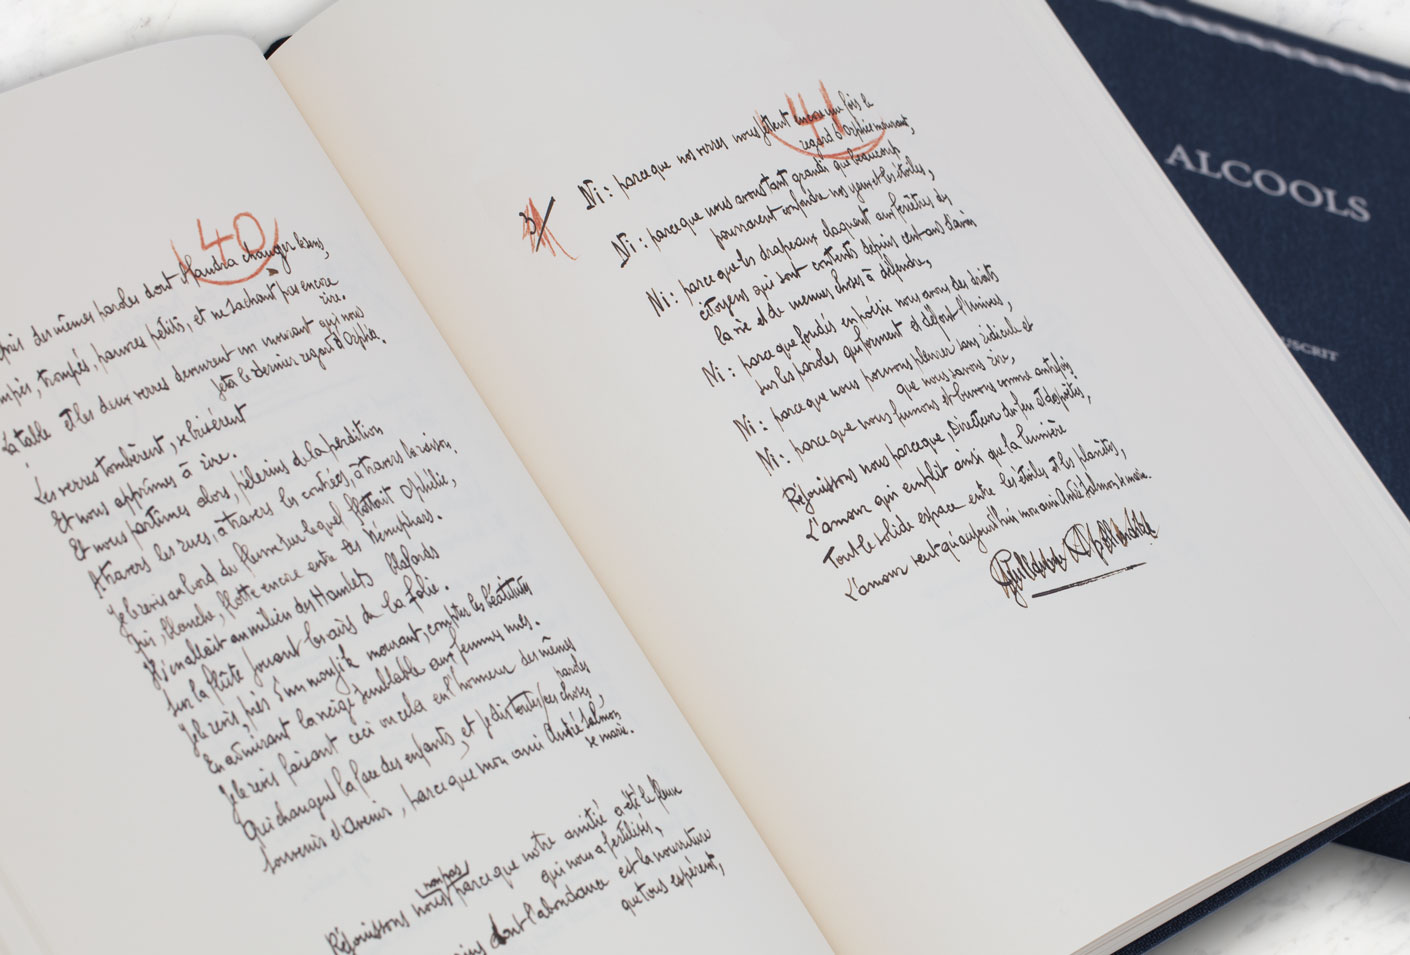 40
près des mêmes paroles dont il faudra changer le sens,
trompés, trompés, pauvres petits, et ne sachant pas encore
rire.
La table et les deux verres devinrent un mourant qui nous
jeta le dernier regard d'Orphée.
Les verres tombèrent, se brisèrent
Et nous apprîmes à rire.
Et nous partîmes alors, pèlerins de la perdition
A travers les rues, à travers les contrées, à travers la raison.
Je le revis au bord du fleuve sur lequel flottait Ophélie,
Qui, blanche, flotte encore entre les Nénuphars.
Il s'en allait au milieu des Hamlets blafards
Sur la flûte jouant les airs de la folie.
Je le revis, près d'un moujik mourant, compter les béatitudes
En admirant la neige semblable aux femmes nues.
Je le revis faisant ceci ou cela en l'honneur des mêmes
paroles
Qui changent la face des enfants, et je dis toutes ces choses,
Souvenir et Avenir, parce que mon ami André Salmon
se marie.
non pas
Réjouissons nous parce que notre amitié a été le fleuve
qui nous a fertilisés,
dont l'abondance est la nourriture
que tous espèrent,
41
3/
Ni : parce que nos verres nous jettent encore une fois le
regard d'Orphée mourant,
Ni : parce que nous avons tant grandi que beaucoup
pourraient confondre nos yeux et les étoiles,
Ni : parce que les drapeaux claquent aux fenêtres des
citoyens qui sont contents depuis cent ans d'avoir
la vie et de menues choses à défendre,
Ni : parce que fondés en poésie nous avons des droits
sur les paroles qui forment et défont l'Univers,
Ni : parce que nous pouvons pleurer sans ridicule et
que nous savons rire,
Ni : parce que nous fumons et buvons comme autrefois
Réjouissons nous parce que, Directeur du feu et des poètes,
L'amour qui emplit ainsi que la lumière
Tout le solide espace entre les étoiles et les planètes,
L'amour veut qu'aujourd'hui mon ami André Salmon se marie.
Guillaume Apollinaire
ALCOOLS
USCRIT